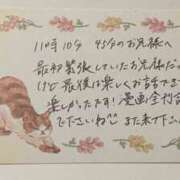 11時10分 45分のお兄様へ
最初緊張していたお兄様だ
けど最後は楽しくお話でき
楽しかったです!漫画全刊
で下さいね
また来て下